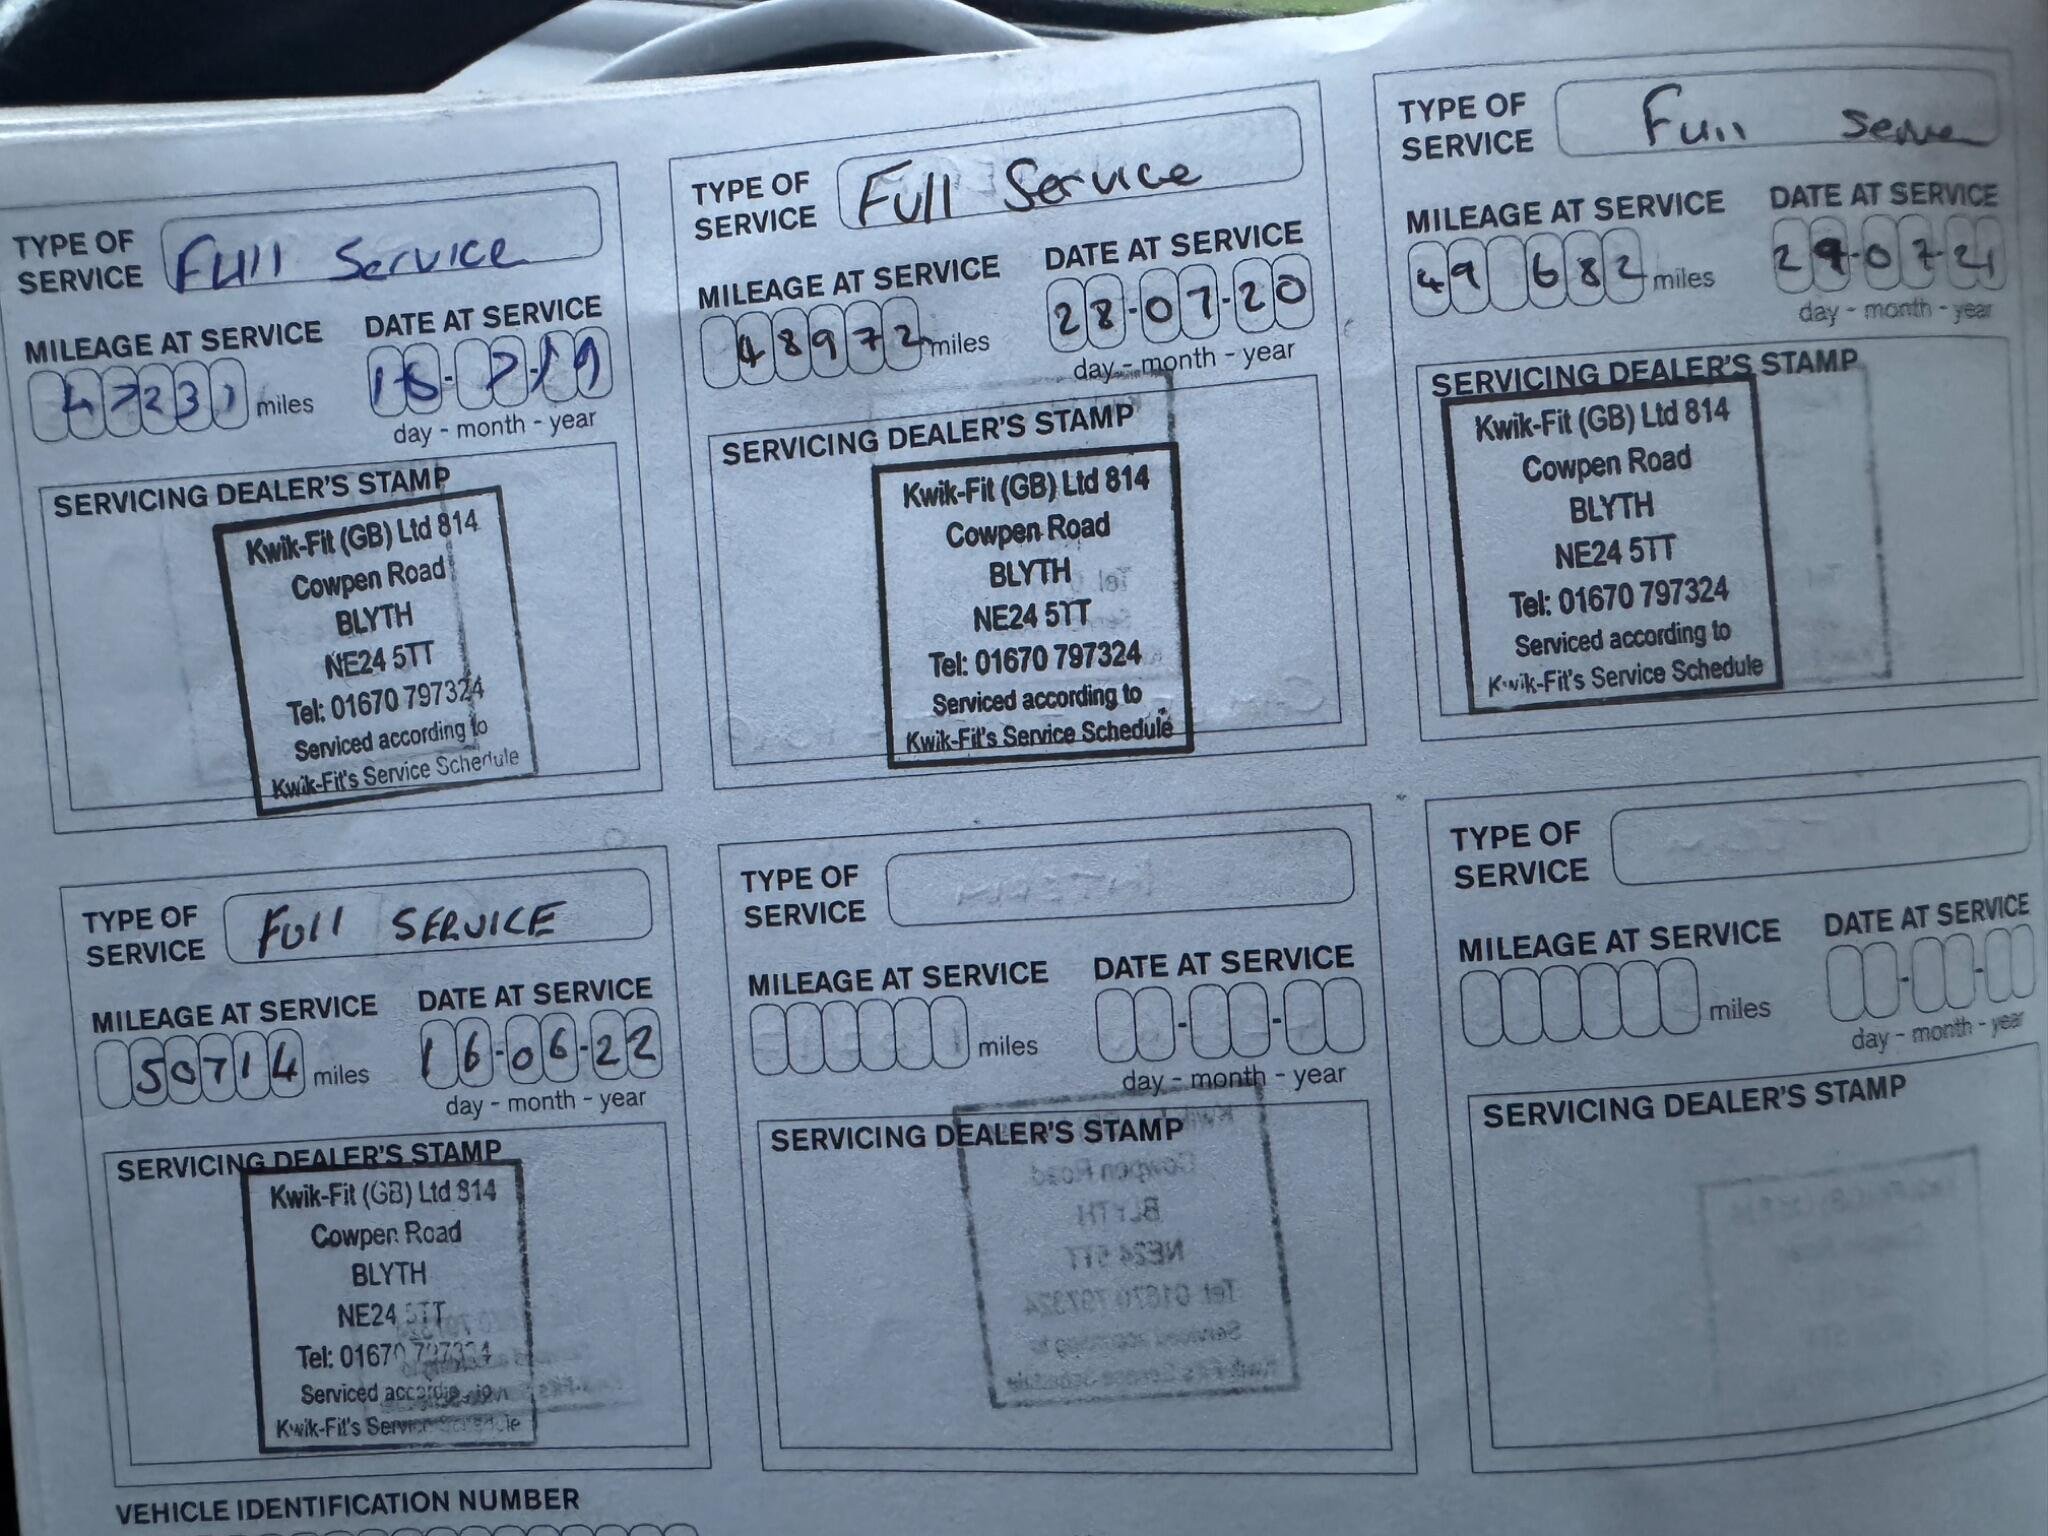 TYPE OF SERVICE Full Service
MILEAGE AT SERVICE DATE AT SERVICE
47231 miles 18-7-19
day - month - year
SERVICING DEALER'S STAMP
Kwik-Fit (GB) Ltd 814
Cowpen Road
BLYTH
NE24 5TT
Tel: 01670 797324
Serviced according to
Kwik-Fit's Service Schedule
TYPE OF SERVICE Full Service
MILEAGE AT SERVICE DATE AT SERVICE
48972 miles 28-07-20
day - month - year
SERVICING DEALER'S STAMP
Kwik-Fit (GB) Ltd 814
Cowpen Road
BLYTH
NE24 5TT
Tel: 01670 797324
Serviced according to
Kwik-Fit's Service Schedule
TYPE OF SERVICE Full Service
MILEAGE AT SERVICE DATE AT SERVICE
49 682 miles 29-07-21
day - month - year
SERVICING DEALER'S STAMP
Kwik-Fit (GB) Ltd 814
Cowpen Road
BLYTH
NE24 5TT
Tel: 01670 797324
Serviced according to
Kwik-Fit's Service Schedule
TYPE OF SERVICE Full SERVICE
MILEAGE AT SERVICE DATE AT SERVICE
50714 miles 16-06-22
day - month - year
SERVICING DEALER'S STAMP
Kwik-Fit (GB) Ltd 814
Cowpen Road
BLYTH
NE24 5TT
Tel: 01670 797324
Serviced according to
Kwik-Fit's Service Schedule
TYPE OF SERVICE
MILEAGE AT SERVICE DATE AT SERVICE
miles
day - month - year
SERVICING DEALER'S STAMP
TYPE OF SERVICE
MILEAGE AT SERVICE DATE AT SERVICE
miles
day - month - year
SERVICING DEALER'S STAMP
VEHICLE IDENTIFICATION NUMBER